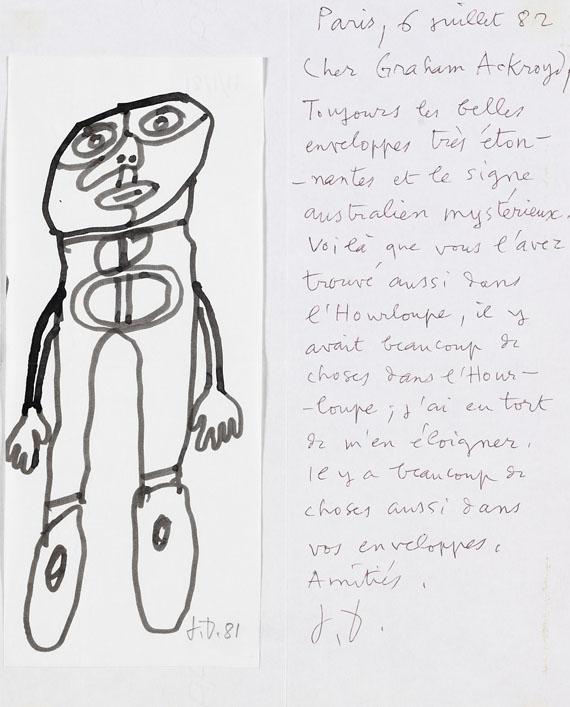 Paris, 6 juillet 82
Cher Graham Ackroyd,
Toujours les belles
enveloppes très éton-
-nantes et le signe
australien mystérieux.
Voilà que vous l'avez
trouvé aussi dans
l'Hourloupe, il y
avait beaucoup de
choses dans l'Hour-
-loupe ; j'ai eu tort
de m'en éloigner.
Il y a beaucoup de
choses aussi dans
vos enveloppes.
Amitiés.
J. D.
J.D. 81